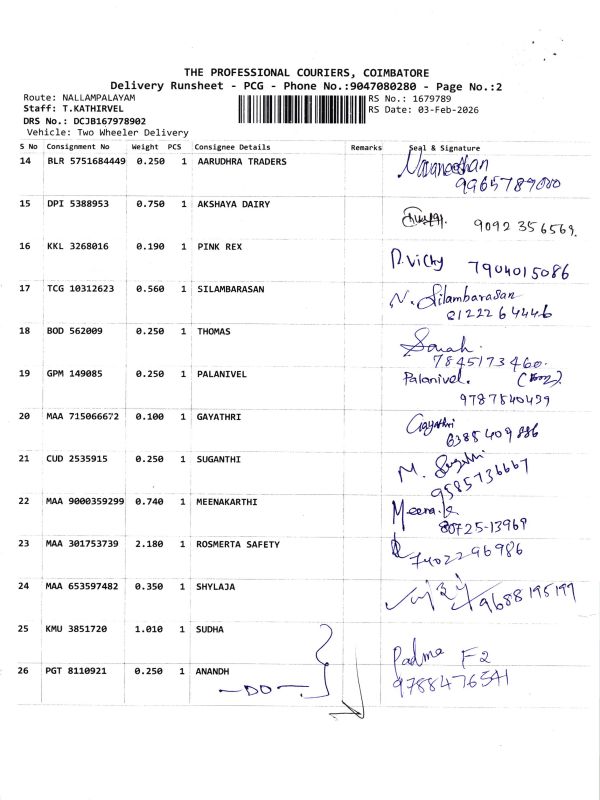 THE PROFESSIONAL COURIERS, COIMBATORE
Delivery Runsheet - PCG - Phone No.:9047080280 - Page No.:2
Route: NALLAMPALAYAM
Staff: T.KATHIRVEL
DRS No.: DCJB167978902
Vehicle: Two Wheeler Delivery
RS No.: 1679789
RS Date: 03-Feb-2026
S No Consignment No Weight PCS Consignee Details Remarks Seal & Signature
14 BLR 5751684449 0.250 1 AARUDHRA TRADERS
9965789000
15 DPI 5388953 0.750 1 AKSHAYA DAIRY 9092 356569.
16 KKL 3268016 0.190 1 PINK REX P. Vicky 7904015086
17 TCG 10312623 0.560 1 SILAMBARASAN N. Silambarasan
8122264446
18 BOD 562009 0.250 1 THOMAS
7845173460.
19 GPM 149085 0.250 1 PALANIVEL Palanivel.
9787840499
20 MAA 715066672 0.100 1 GAYATHRI Gayathri
6385409886
21 CUD 2535915 0.250 1 SUGANTHI M. Sugathi
9585736667
22 MAA 9000359299 0.740 1 MEENAKARTHI Meena.k
80725-13969
23 MAA 301753739 2.180 1 ROSMERTA SAFETY
7402296986
24 MAA 653597482 0.350 1 SHYLAJA 9688195199
25 KMU 3851720 1.010 1 SUDHA
Padma F2
26 PGT 8110921 0.250 1 ANANDH 9788476541
-DO-.